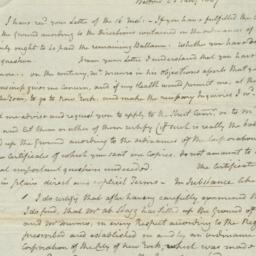 I have recd your Letter of the 16 inst. - If you have fulfilled the
the Ground according to the Directions contained in the ordinances of
only ought to be paid the remaining Ballance. Whether you have do
question. I from your Letter I understand that you have
on the contrary, Mr Munro in his objections asserts that y
give me Concern, and if my Health would permit me, at the
to go to New York, and make the necessary Inquiries
me advice and request you to apply to the Street Com.r, or to
and let them or either of them certify (if such is really the
up the Ground according to the ordinances of the Corporation
Certificates of which you sent me Copies, do not amount to
important question undecided. The Certificate
in plain direct and explicit Terms - In Substance like
I do certify that after having carefully examined
do find, that Mr Ab. Stagg has filled up the Ground of
and Mr Munro, in every Respect according to the Reg
prescribed and established in and by an ordinance
Corporation of the City of New York, which was made